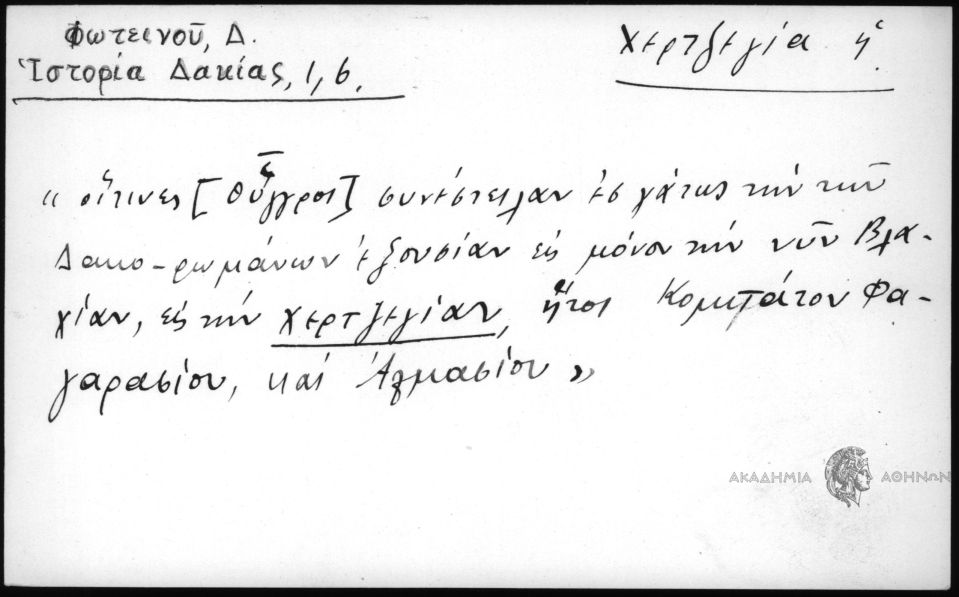 Φωτεινοῦ, Δ.
Ἱστορία Δακίας, 1, 6.
Χερτζεγία ἡ.
« οἵτινες [Οὗγγροι] συνέστειλαν ἐσχάτως τὴν τῶν
Δακο-ρωμάνων ἐξουσίαν εἰς μόνον τὴν νῦν Βλα-
χίαν, εἰς τὴν Χερτζεγίαν, ἤτοι Κομιτάτον Φα-
γαρασίου, καὶ Ἁλμασίου »
ΑΚΑΔΗΜΙΑ ΑΘΗΝΩΝ